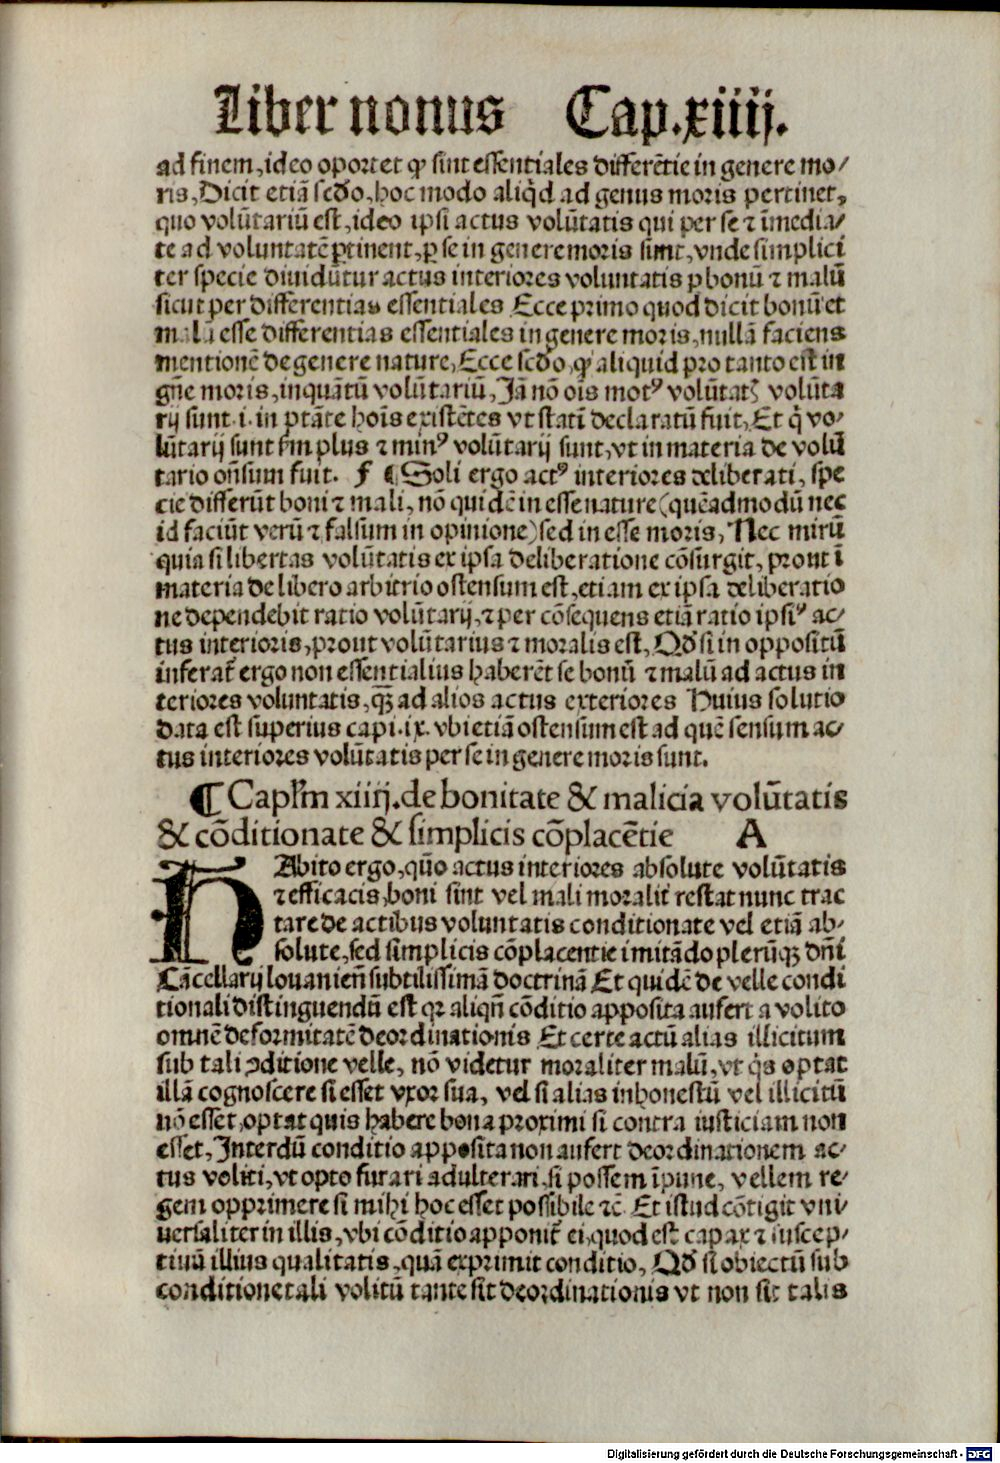 Liber nonus Cap.xiiij.
ad finem, ideo oportet ꝙ sint essentiales differẽtie in genere mo/
ris, Dicit etiã scďo, hoc modo aliqd̓ ad genus moris pertinet,
quo volũtariũ est, ideo ipsi actus volũtatis qui per se ⁊ ĩmedia/
te ad voluntatẽ ꝑtinent, ꝑ se in genere moris sunt, vnde simplici
ter specie diuidũtur actus interiores voluntatis ꝑ bonũ ⁊ malũ
sicut per differentias essentiales Ecce primo quod dicit bonũ et
malũ esse differentias essentiales in genere moris, nullã faciens
mentionẽ de genere nature, Ecce scďo, ꝙ aliquid pro tanto est in
gñe moris, inquãtũ volũtariũ, Jã nõ oĩs motꝰ volũtatꝭ volũta
rij sunt .i. in ptãte hoĩs existẽtes vt statĩ declaratũ fuit, Et q̃ vo-
lũtarij sunt sm̃ plus ⁊ minꝰ volũtarij sunt, vt in materia de volũ
tario oñsum fuit. f ¶ Soli ergo actꝰ interiores deliberati, spe
cie differũt boni ⁊ mali, nõ quidẽ in esse nature (quẽadmodũ nec
id faciũt verũ ⁊ falsum in opinione) sed in esse moris, Nec mirũ
quia si libertas volũtatis ex ipsa deliberatione cõsurgit, prout ĩ
materia de libero arbitrio ostensum est, etiam ex ipsa deliberatio
ne dependebit ratio volũtarij, ⁊ per cõsequens etiã ratio ipsiꝰ ac/
tus interioris, prout volũtarius ⁊ moralis est, Qď si in oppositũ
inferat̃ ergo non essentialius haberẽt se bonũ ⁊ malũ ad actus in
teriores voluntatis, qꝫ̃ ad alios actus exteriores Huius solutio
data est superius capi.ix. vbi etiã ostensum est ad quẽ sensum ac/
tus interiores volũtatis per se in genere moris sunt.
¶ Caplm̃ xiiij. de bonitate & malicia volũtatis
& cõditionate & simplicis cõplacẽtie A
HAbito ergo, quõ actus interiores absolute volũtatis
⁊ efficacis, boni sint vel mali moralit̃ restat nunc trac
tare de actibus voluntatis conditionate vel etiã ab-
solute, sed simplicis cõplacentie imitãdo plerũqꝫ dñi
Cãcellarij louanieñ subtilissimã doctrinã Et quidẽ de velle condi
tionali distinguendũ est qꝛ aliqñ cõditio apposita aufert a volito
omnẽ deformitatẽ deordinationis Et certe actũ alias illicitum
sub tali ↄditione velle, nõ videtur moraliter malũ, vt q̃s optat
illã cognoscere si esset vxor sua, vel si alias inhonestũ vel illicitũ
nõ esset, optat quis habere bona proximi si contra iusticiam non
esset, Interdũ conditio apposita non aufert deordinationem ac/
tus voliti, vt opto furari adulterari, si possem ĩpune, vellem re-
gem opprimere si mihi hoc esset possibile ⁊c̃ Et istud cõtigit vni/
uersaliter in illis, vbi cõditio apponit̃ ei, quod est capax ⁊ suscep/
tiuũ illius qualitatis, quã exprimit conditio, Qď si obiectũ sub
conditione tali volitũ tante sit deordinationis vt non sit talis
Digitalisierung gefördert durch die Deutsche Forschungsgemeinschaft - DFG